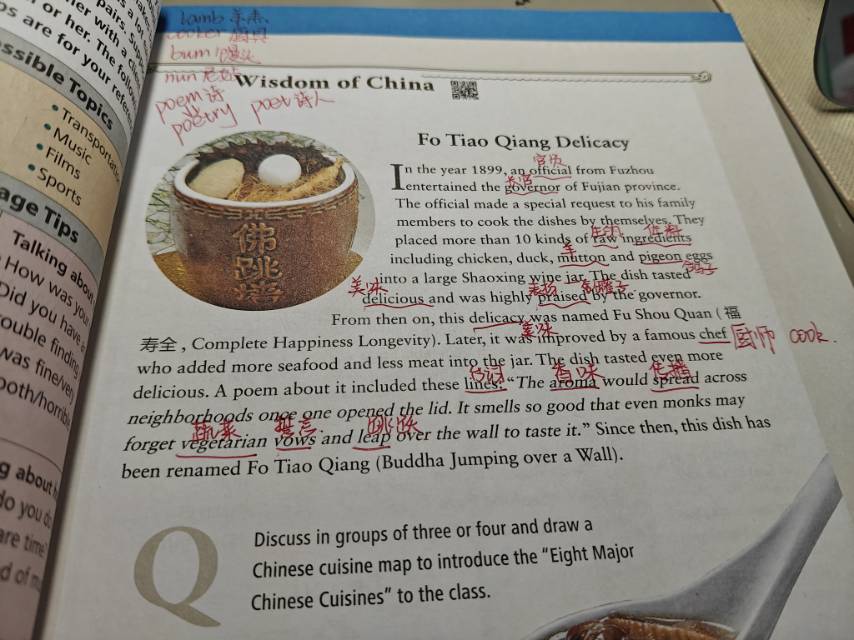 makes
a lot.
pairs. Sup
her with a cl
or her. The follo
os are for your refere
ossible Topics
• Transportatio
• Music
• Films
• Sports
age Tips
Talking about
How was you
Did you have a
rouble finding
was fine/very
ooth/horribl
g about h
do you do
are time?
d of mu
lamb 羔羊
cooker 厨具
bum 馒头
nun 尼姑
poem 诗
poetry poet 诗人
Wisdom of China
Fo Tiao Qiang Delicacy
佛
跳
墙
官员
In the year 1899, an official from Fuzhou
entertained the governor of Fujian province.
The official made a special request to his family
members to cook the dishes by themselves. They
placed more than 10 kinds of raw ingredients
羊
including chicken, duck, mutton and pigeon eggs
鸽子
into a large Shaoxing wine jar. The dish tasted
美味
delicious and was highly praised by the governor.
From then on, this delicacy was named Fu Shou Quan (福
美味
寿全, Complete Happiness Longevity). Later, it was improved by a famous chef 厨师 cook.
who added more seafood and less meat into the jar. The dish tasted even more
台词 香味 传播
delicious. A poem about it included these lines: “The aroma would spread across
neighborhoods once one opened the lid. It smells so good that even monks may
蔬菜 誓言 跳跃
forget vegetarian vows and leap over the wall to taste it.” Since then, this dish has
been renamed Fo Tiao Qiang (Buddha Jumping over a Wall).
Q
Discuss in groups of three or four and draw a
Chinese cuisine map to introduce the “Eight Major
Chinese Cuisines” to the class.